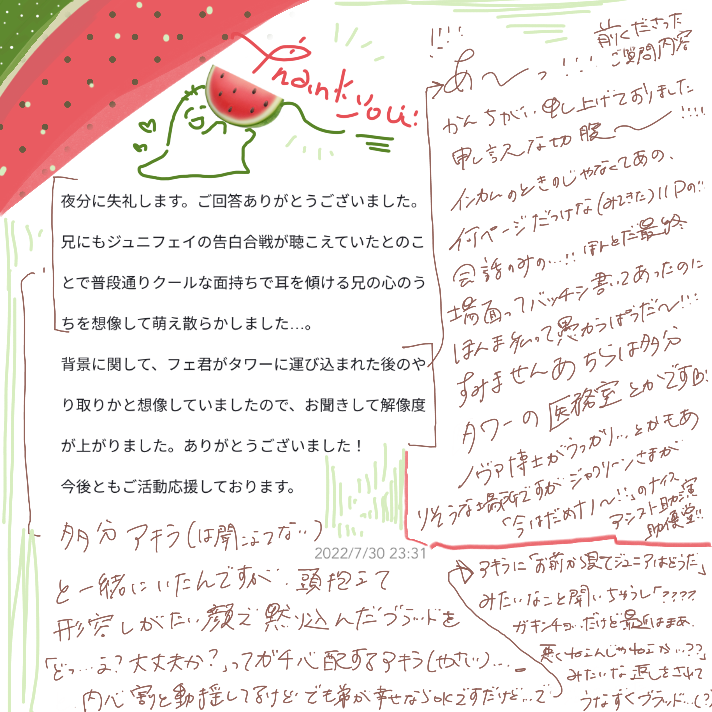 Thank you!
夜分に失礼します。ご回答ありがとうございました。
兄にもジュニフェイの告白合戦が聴こえていたとのこ
とで普段通りクールな面持ちで耳を傾ける兄の心のう
ちを想像して萌え散らかしました…。
背景に関して、フェ君がタワーに運び込まれた後のや
り取りかと想像していましたので、お聞きして解像度
が上がりました。ありがとうございました！
今後ともご活動応援しております。
2022/7/30 23:31
前くださった
ご質問内容
!!!!
あ〜っ!!!
かんちがい申し上げておりました
申し訳な切腹〜!!!!
インカムのときのじゃなくてあの、
何ページだっけな(みてきた)11Pの!!
会話のみの…!! ほんとだ最終
場面ってバッチシ書いてあったのに
ほんま私って愚かうぱうだ〜!!!
すみませんあちらは多分
タワーの医務室とかです
ノヴァ博士がうっかり…とかもあ
りそうな場所ですがジャクリーンさまが
「今はだめナノ〜!!」のナイス
アシスト助演
助優堂!!
多分アキラ(は聞こえてない)
と一緒にいたんですが、頭抱えて
形容しがたい顔で黙り込んだブラッドを
「どっ…え?大丈夫か?」ってガチ心配するアキラ(やさしい)…
内心割と動揺してるけどでも弟が幸せならOKですだけど…で
アキラに「お前から見てジュニアはどうだ」
みたいなこと聞いちゃうし「????
ガキンチョ…だけど最近はまあ、
悪くねえんじゃねえか…??」
みたいな返しをされて
うなずくブラッド…(?)